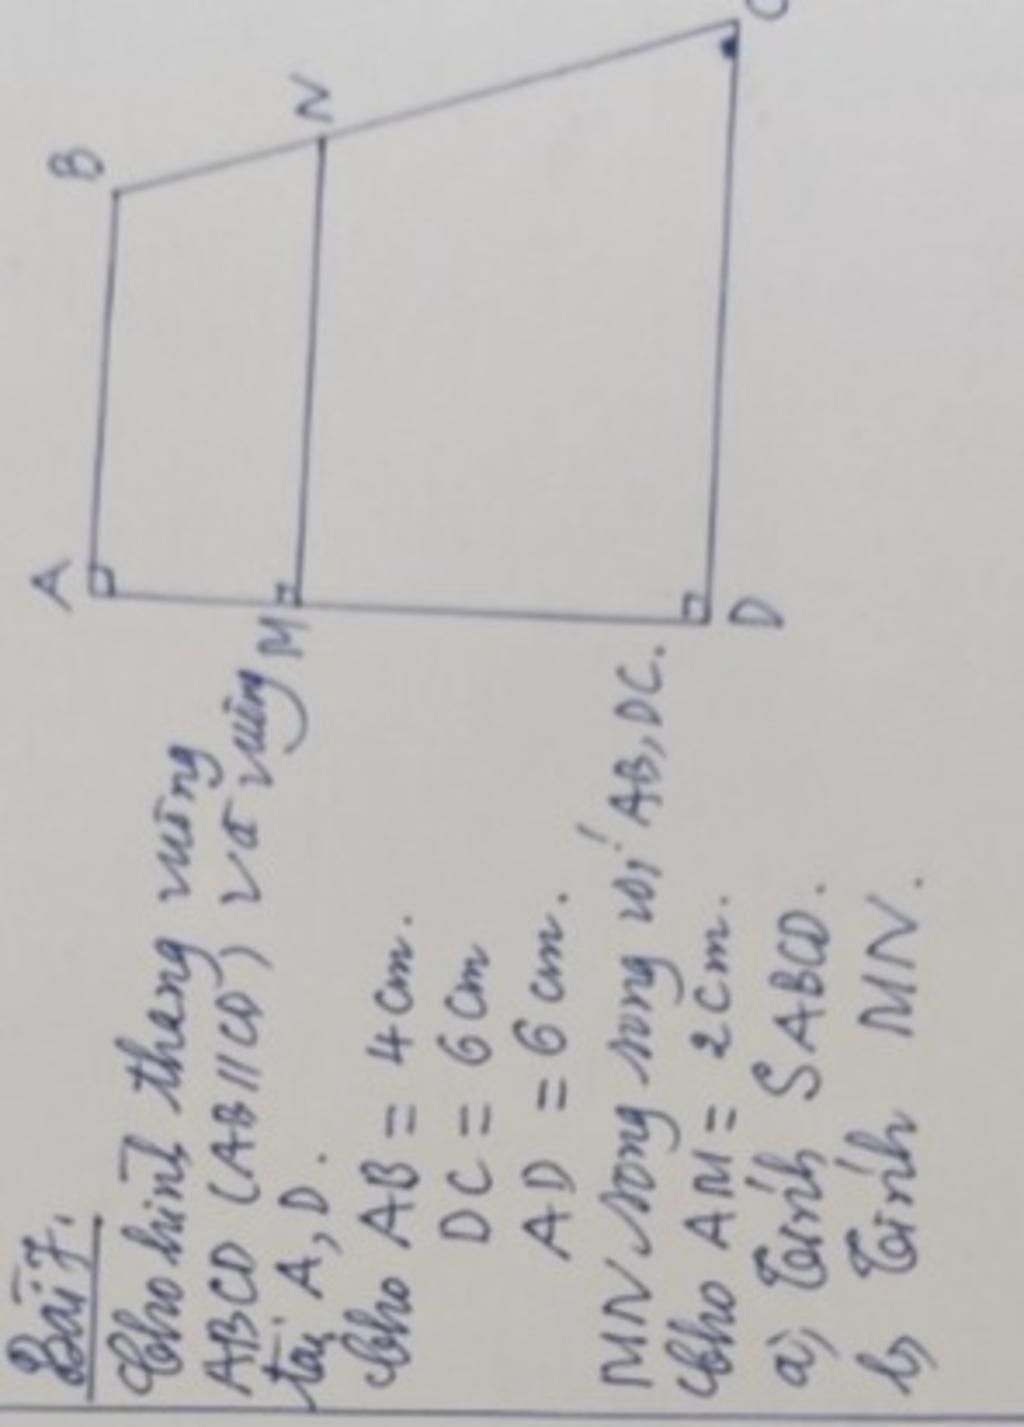 Bài 7.
Cho hình thang vuông
ABCD (AB//CD) và vuông
tại A, D.
Cho AB = 4cm.
DC = 6cm
AD = 6cm.
MN song song với AB, DC.
Cho AM = 2cm.
a, Tính SABCD.
b, Tính MN.
A
B
M
N
D
C